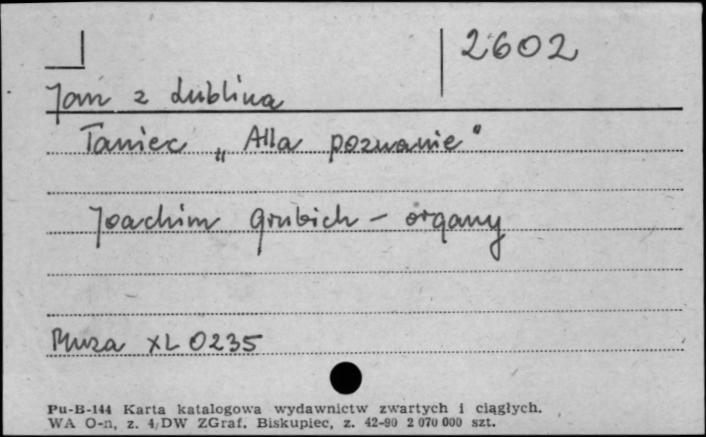 2602
Jan z Lublina
Taniec „Alla poznanie"
Joachim Grubich - organy
Muza XL 0235
Pu-B-144 Karta katalogowa wydawnictw zwartych i ciągłych.
WA O-n, z. 4/DW ZGraf. Biskupiec, z. 42-90 2 070 000 szt.